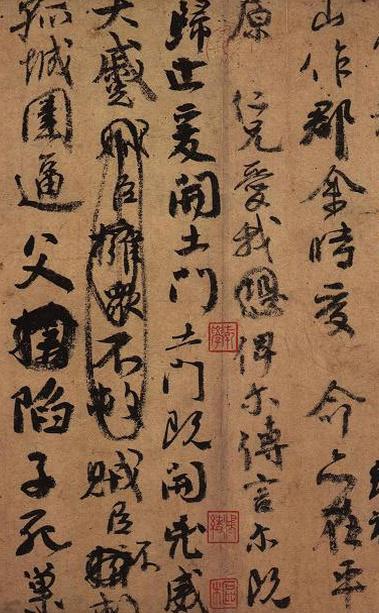 山作郡余時受命亦在平
原仁兄愛我俾尔傳言尔既
歸止爰開土門土門既開兇威
大蹙賊臣擁衆不救賊臣不救
孤城圍逼父陷子死巢